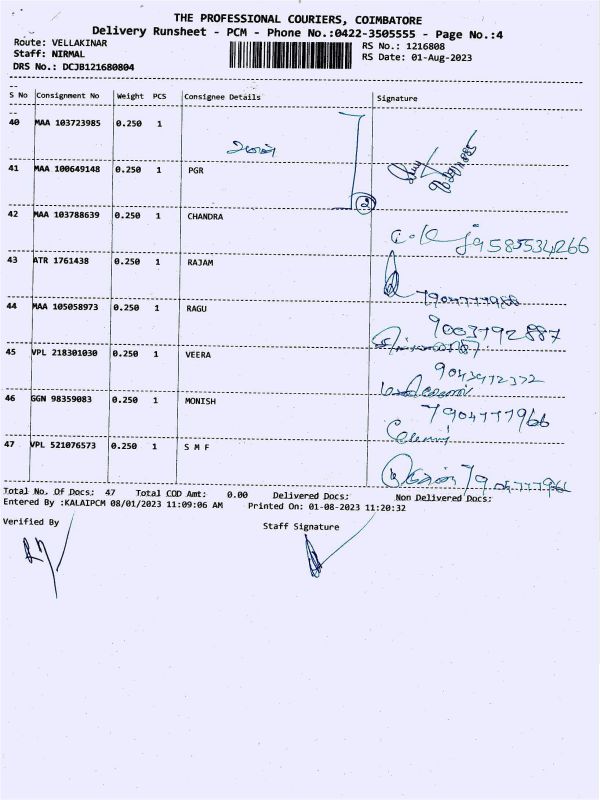 THE PROFESSIONAL COURIERS, COIMBATORE
Delivery Runsheet - PCM - Phone No.:0422-3505555 - Page No.:4
Route: VELLAKINAR
Staff: NIRMAL
DRS No.: DCJB121680804
RS No.: 1216808
RS Date: 01-Aug-2023
S No Consignment No Weight PCS Consignee Details Signature
40 MAA 103723985 0.250 1
41 MAA 100649148 0.250 1 PGR
2
42 MAA 103788639 0.250 1 CHANDRA
9585534266
43 ATR 1761438 0.250 1 RAJAM
44 MAA 105058973 0.250 1 RAGU
9003792887
45 VPL 218301030 0.250 1 VEERA
46 GGN 98359083 0.250 1 MONISH
47 VPL 521076573 0.250 1 S M F
Total No. Of Docs: 47 Total COD Amt: 0.00 Delivered Docs: Non Delivered Docs:
Entered By :KALAIPCM 08/01/2023 11:09:06 AM Printed On: 01-08-2023 11:20:32
Verified By Staff Signature